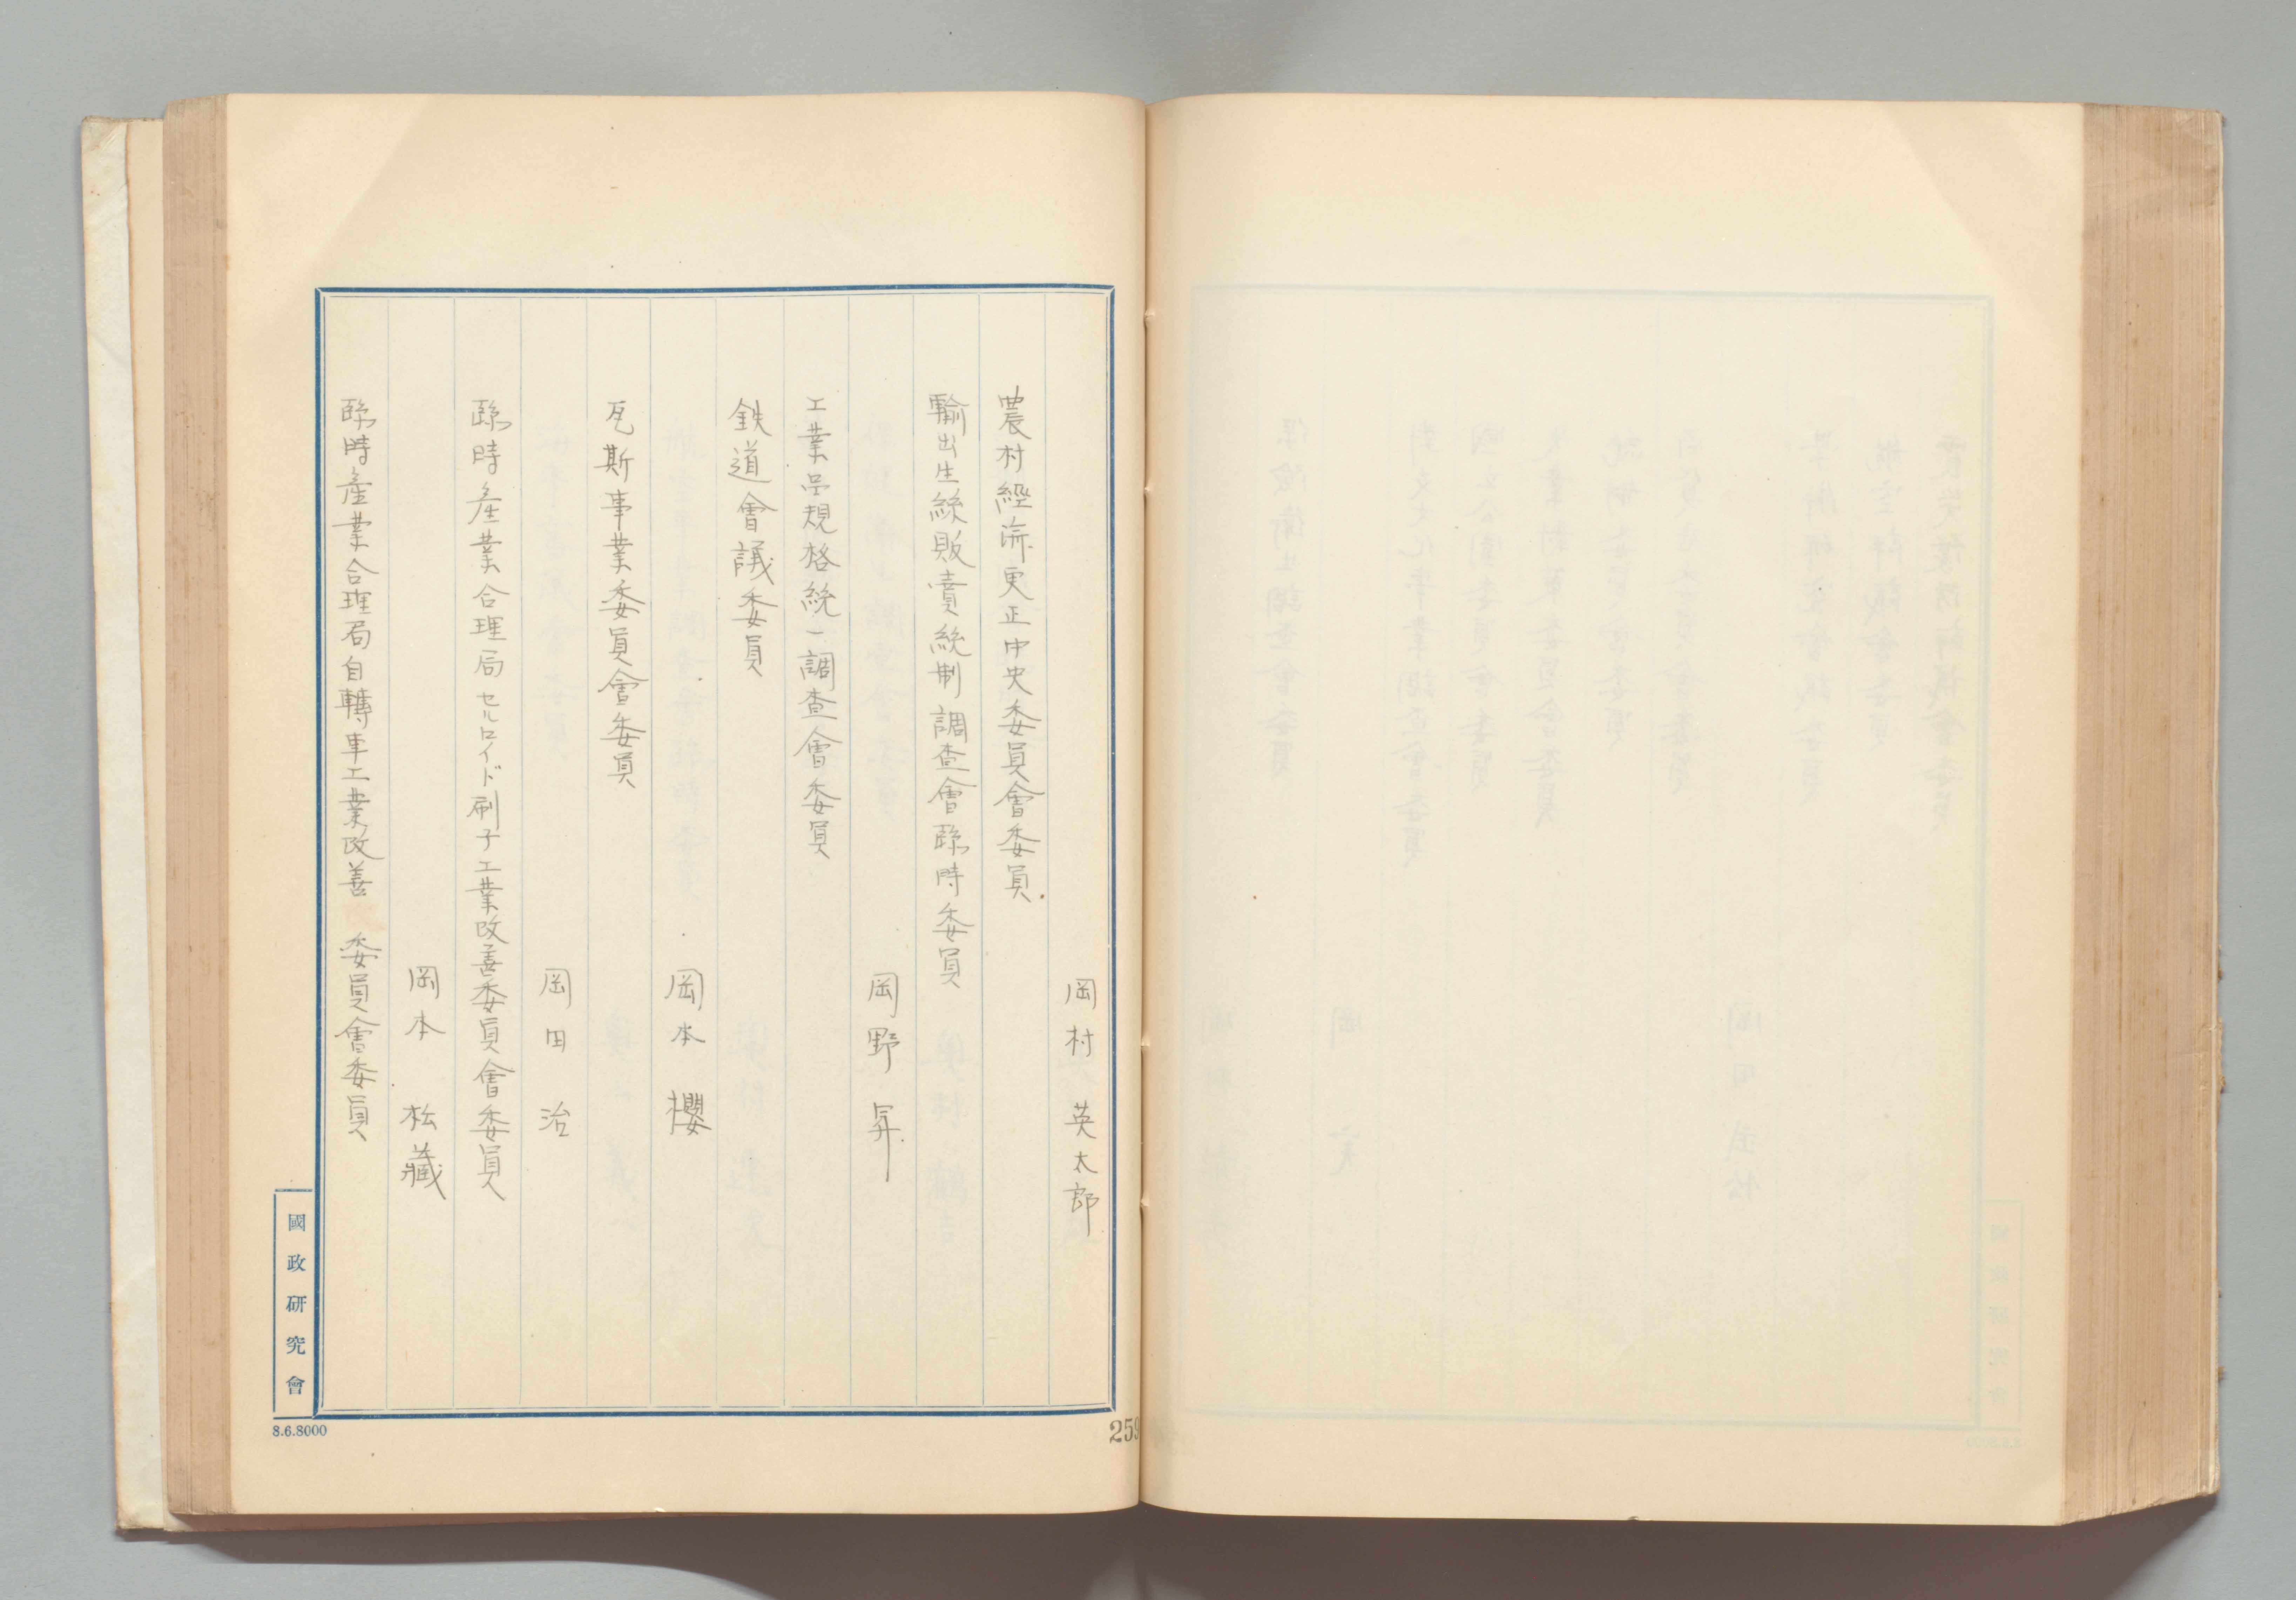 岡村英太郎
農村經済更正中央委員會委員.
輸出生絲販賣統制調査會臨時委員
岡野昇
工業品規格統一調査會委員
鉄道會議委員
岡本櫻
瓦斯事業委員會委員
岡田治
臨時産業合理局セルロイド刷子工業改善委員會委員
岡本松藏
臨時産業合理局自轉車工業改善 委員會委員
國政研究會
8.6.8000
259